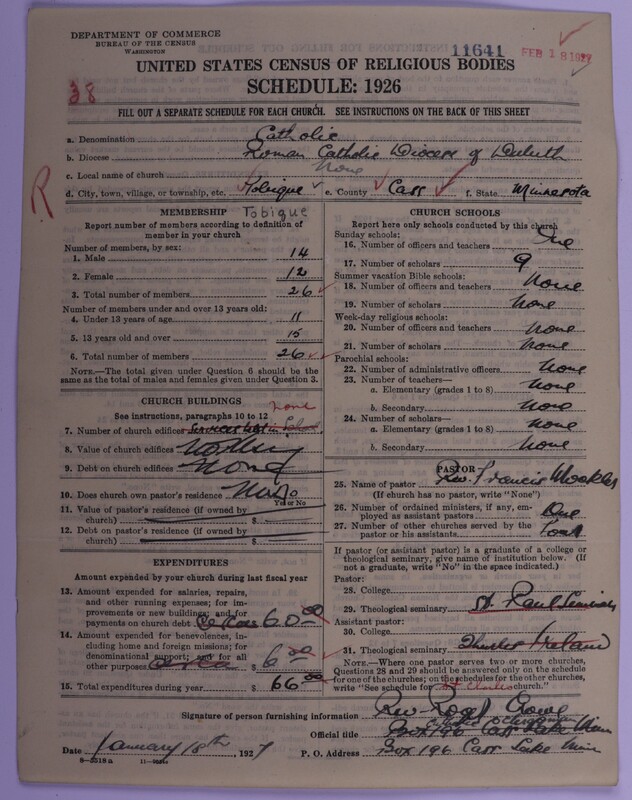 DEPARTMENT OF COMMERCE
BUREAU OF THE CENSUS
WASHINGTON
11641
FEB 18 1927
UNITED STATES CENSUS OF RELIGIOUS BODIES
SCHEDULE: 1926
38
FILL OUT A SEPARATE SCHEDULE FOR EACH CHURCH. SEE INSTRUCTIONS ON THE BACK OF THIS SHEET
a. Denomination Catholic
b. Diocese Roman Catholic Diocese of Duluth
c. Local name of church None
R
d. City, town, village, or township, etc. Tobique e. County Cass f. State Minnesota
MEMBERSHIP Tobique
Report number of members according to definition of
member in your church
Number of members, by sex:
1. Male 14
2. Female 12
3. Total number of members 26
Number of members under and over 13 years old:
4. Under 13 years of age 11
5. 13 years old and over 15
6. Total number of members 26
NOTE.—The total given under Question 6 should be the
same as the total of males and females given under Question 3.
CHURCH BUILDINGS
See instructions, paragraphs 10 to 12 none
7. Number of church edifices Services kept in School
8. Value of church edifices Nothing
9. Debt on church edifices None
10. Does church own pastor's residence No
Yes or No
11. Value of pastor's residence (if owned by
church) $
12. Debt on pastor's residence (if owned by
church) $
EXPENDITURES
Amount expended by your church during last fiscal year
13. Amount expended for salaries, repairs,
and other running expenses; for im-
provements or new buildings; and for
payments on church debt $ 60.00
14. Amount expended for benevolences, in-
cluding home and foreign missions; for
denominational support; and for all
other purposes $ 6.00
15. Total expenditures during year $ 66.00
CHURCH SCHOOLS
Report here only schools conducted by this church
Sunday schools:
16. Number of officers and teachers One
17. Number of scholars 9
Summer vacation Bible schools:
18. Number of officers and teachers None
19. Number of scholars None
Week-day religious schools:
20. Number of officers and teachers None
21. Number of scholars None
Parochial schools:
22. Number of administrative officers None
23. Number of teachers—
a. Elementary (grades 1 to 8) None
b. Secondary None
24. Number of scholars—
a. Elementary (grades 1 to 8) None
b. Secondary None
PASTOR
25. Name of pastor Rev. Francis
(If church has no pastor, write "None")
26. Number of ordained ministers, if any, em-
ployed as assistant pastors One
27. Number of other churches served by the
pastor or his assistants Four
If pastor (or assistant pastor) is a graduate of a college or
theological seminary, give name of institution below. (If
not a graduate, write "No" in the space indicated.)
Pastor:
28. College
29. Theological seminary St. Paul Seminary
Assistant pastor:
30. College
31. Theological seminary Ireland
NOTE.—Where one pastor serves two or more churches,
Questions 28 and 29 should be answered only on the schedule
for one of the churches; on the schedules for the other churches,
write "See schedule for St Charles church."
Signature of person furnishing information Rev. Roger Crowe
Official title Catholic Clergyman Box 196 Cass Lake Minn
Date January 18th, 1927 P. O. Address Box 196 Cass Lake Minn
8-5318a